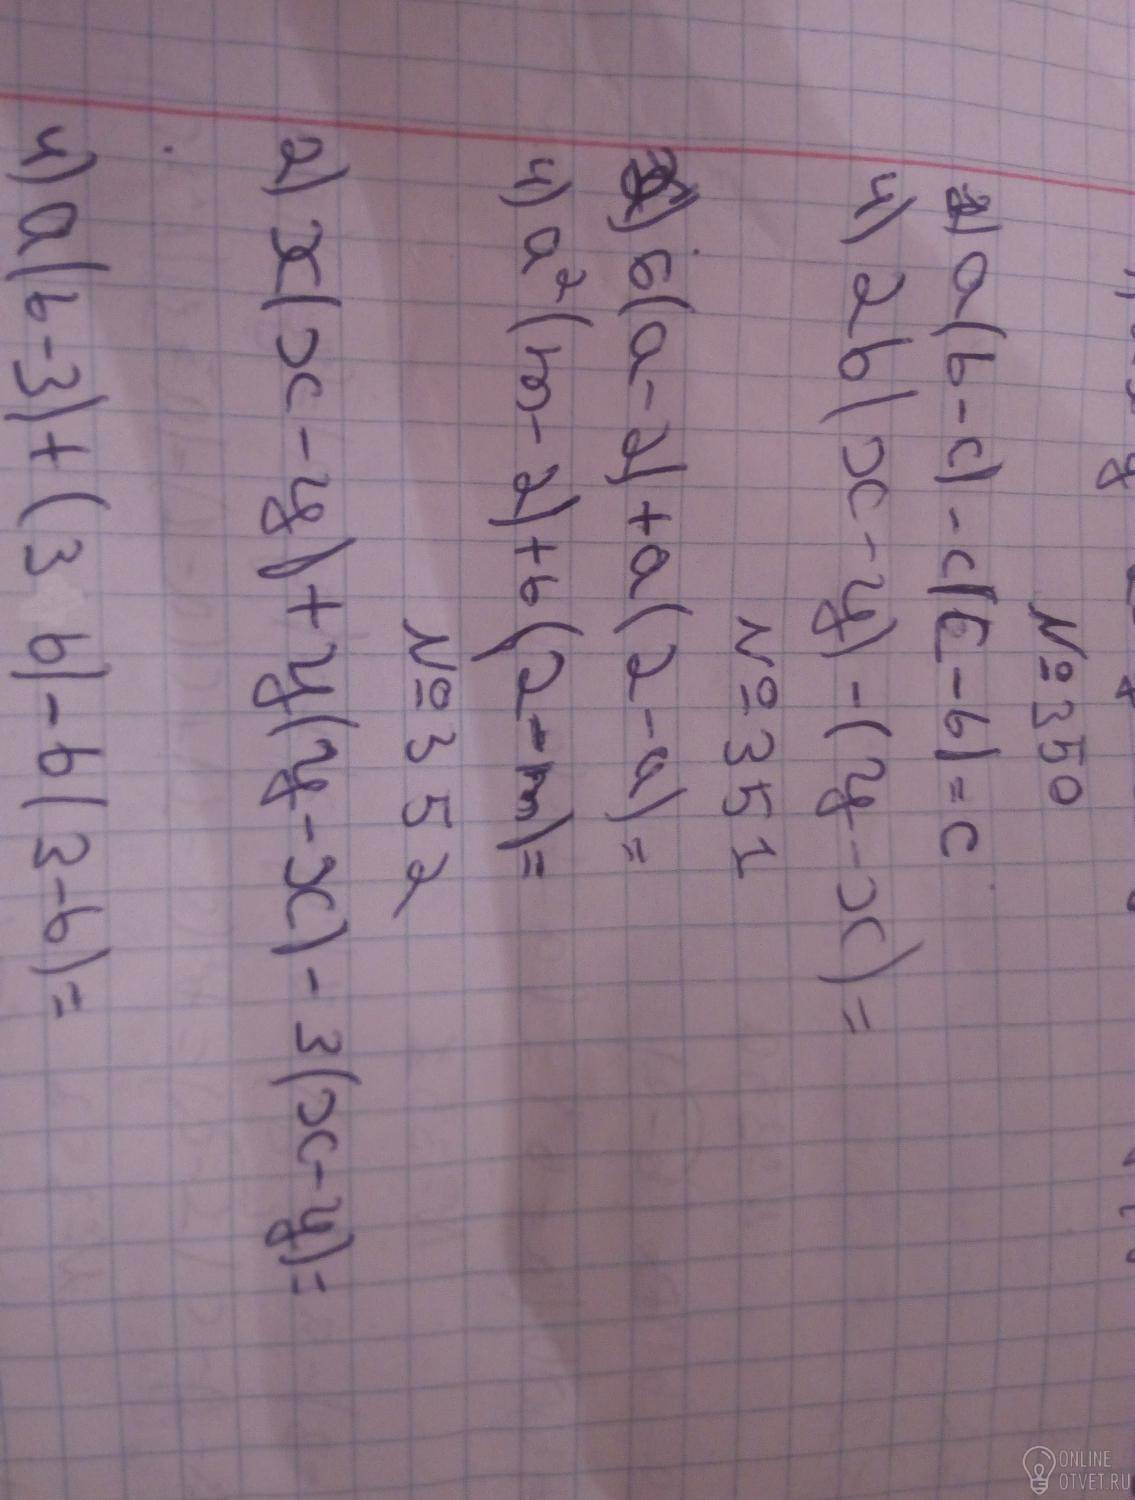 №350
2) a(b-c)-c(c-b)=c
4) 2b(x-y)-(y-x)=
№351
2) 6(a-2)+a(2-a)=
4) a²(m-2)+b(2-m)=
№352
2) x(x-y)+y(y-x)-3(x-y)=
4) a(b-3)+(3 b)-b(3-b)=
ONLINE
OTVET.RU